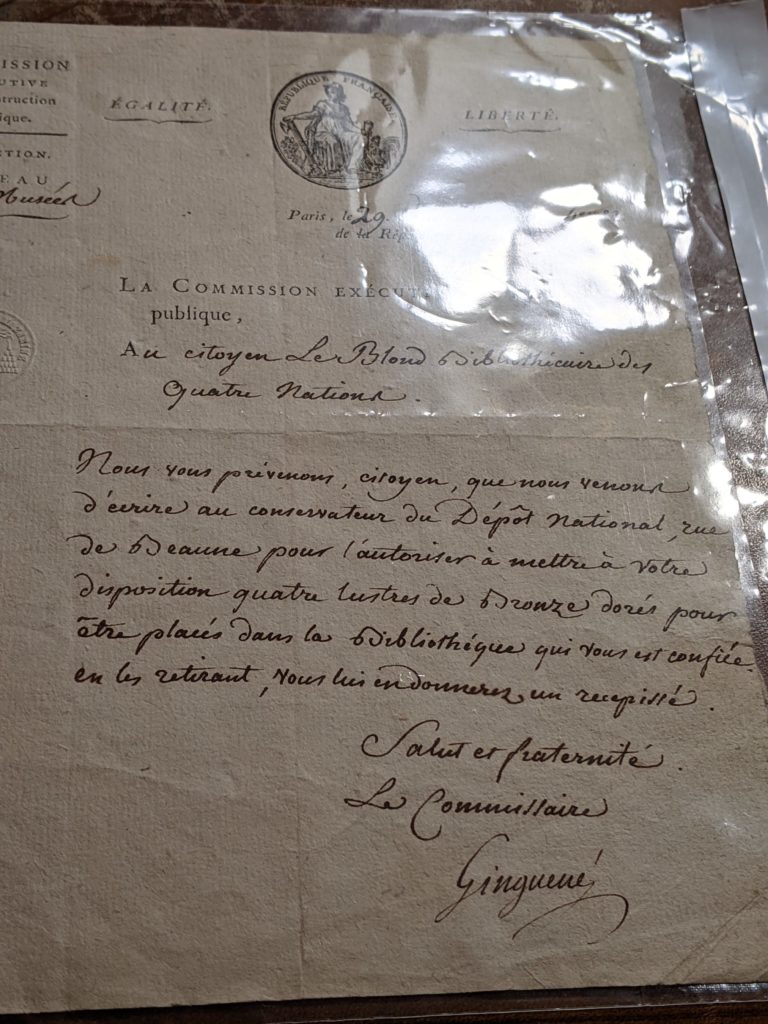 ISSION
UTIVE
struction
ique.
TION.
EAU
Musées
ÉGALITÉ.
RÉPUBLIQUE FRANÇAISE
LIBERTÉ.
Paris, le 29.
de la Rép
LA COMMISSION EXÉCUT
publique,
Au citoyen Le Blond Bibliothécaire des
Quatre Nations.
Nous vous prévenons, citoyen, que nous venons
d'écrire au conservateur du Dépôt National, rue
de Beaune pour l'autoriser à mettre à votre
disposition quatre lustres de Bronze dorés pour
être placés dans la Bibliothéque qui vous est confiée.
en les retirant, vous lui en donnerez un recepissé.
Salut et fraternité.
Le Commissaire
Ginguené